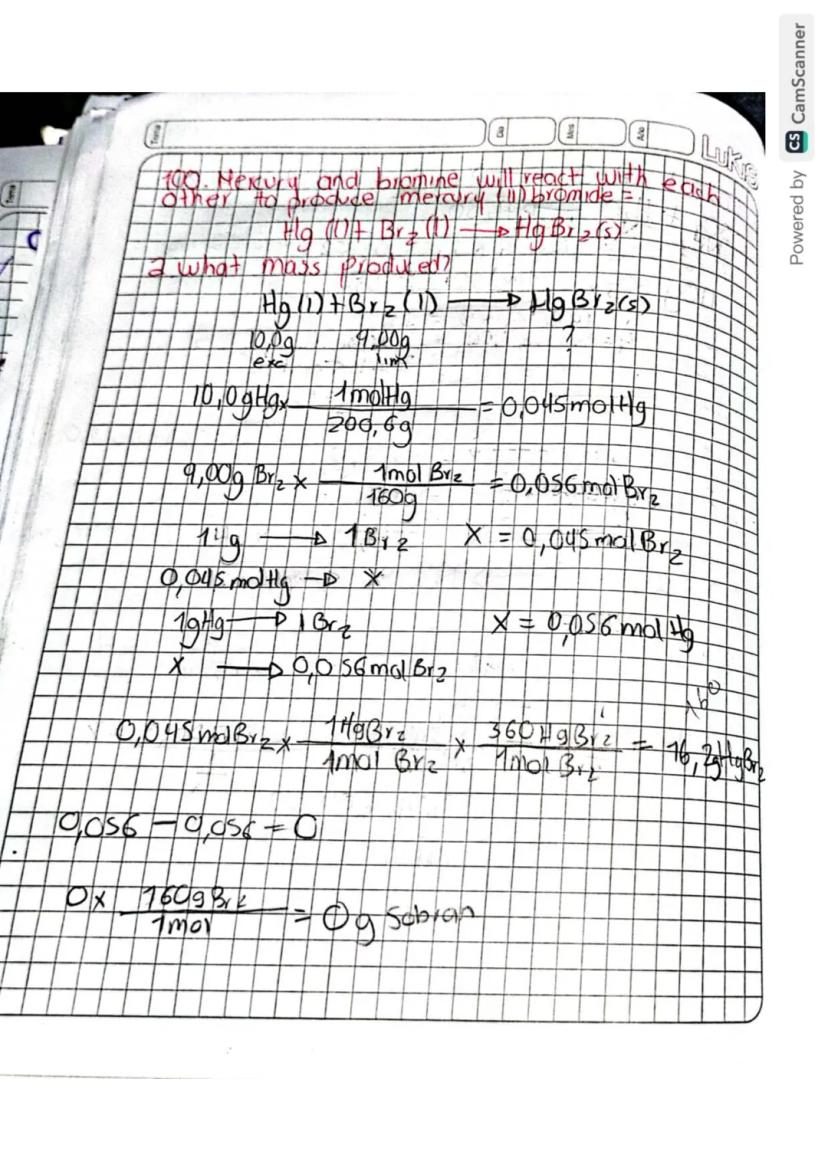 Powered by CS CamScanner
Tema Día Mes Año
LUKAS
100. Mercury and bromine will react with each
other to produce mercury (II) bromide =
Hg (l) + Br₂ (l) → HgBr₂(s)
a. what mass produced?
Hg(l) + Br₂ (l) → HgBr₂(s)
10,0g 9,00g ?
exc lim
10,0gHg x 1molHg / 200,6g = 0,045molHg
9,00g Br₂ x 1mol Br₂ / 160g = 0,056 mol Br₂
1Hg → 1Br₂ X = 0,045mol Br₂
0,045 molHg → X
1gHg → 1Br₂ X = 0,056 mol Hg
X → 0,056 mol Br₂
0,045 molBr₂ x 1HgBr₂ / 1mol Br₂ x 360 HgBr₂ / 1mol Br₂ = 16,2gHgBr₂
0,056 - 0,056 = 0
0 x 160g Br₂ / 1mol = 0g Sobran